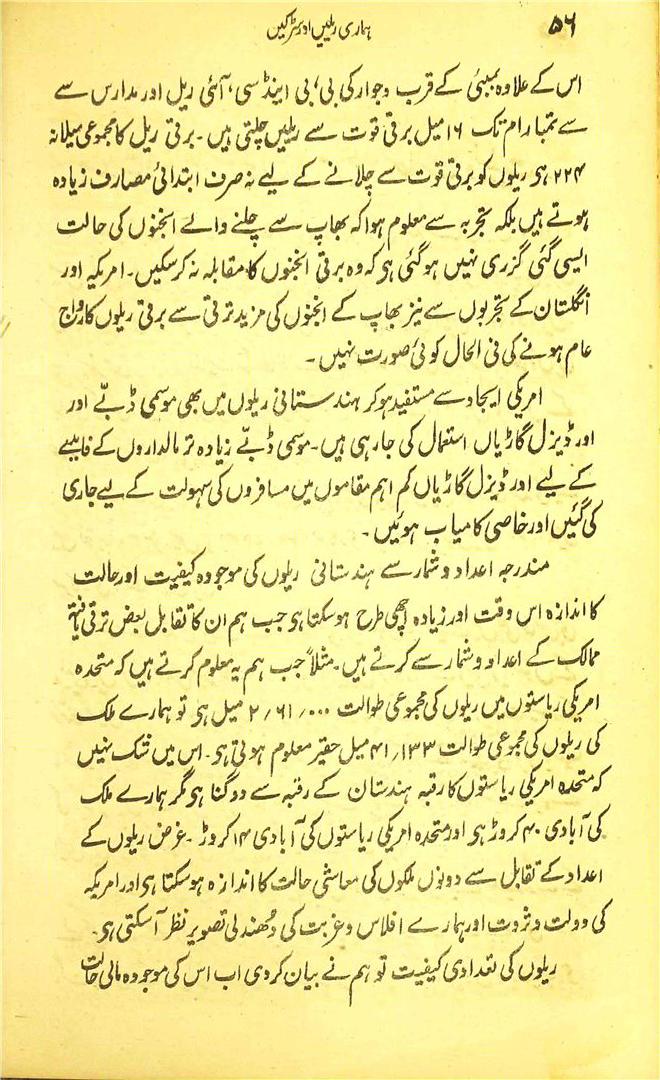 ۵۶
ہماری ریلیں اور سڑکیں
اس کے علاوہ بمبئی کے قرب وجوار کی بی، بی اینڈ سی، آئی ریل اور مدارس سے
سے تمبارام تک ۱۶ میل برقی قوت سے ریلیں چلتی ہیں۔ برقی ریل کا مجموعی میلانہ
۲۲۴ ہی ریلوں کو برقی قوت سے چلانے کے لیے نہ صرف ابتدائی مصارف زیادہ
ہوتے ہیں بلکہ تجربہ سے معلوم ہوا کہ بھاپ سے چلنے والے انجنوں کی حالت
ایسی گئی گزری نہیں ہو گئی ہی کہ وہ برقی انجنوں کا مقابلہ نہ کر سکیں۔ امریکہ اور
انگلستان کے تجربوں سے نیز بھاپ کے انجنوں کی مزید ترقی سے برقی ریلوں کا رواج
عام ہونے کی فی الحال کوئی صورت نہیں۔
امریکی ایجاد سے مستفید ہو کر ہندستانی ریلوں میں بھی موسمی ڈبّے اور
اور ڈیزل گاڑیاں استعمال کی جا رہی ہیں۔ موسمی ڈبّے زیادہ تر مالداروں کے فایدے
کے لیے اور ڈیزل گاڑیاں کم اہم مقاموں میں مسافروں کی سہولت کے لیے جاری
کی گئیں اور خاصی کامیاب ہوئیں۔
مندرجہ اعداد و شمار سے ہندستانی ریلوں کی موجودہ کیفیت اور حالت
کا اندازہ اس وقت اور زیادہ اچھی طرح ہو سکتا ہی جب ہم ان کا تقابل بعض ترقی یافتہ
ممالک کے اعداد و شمار سے کرتے ہیں۔ مثلاً جب ہم یہ معلوم کرتے ہیں کہ متحدہ
امریکی ریاستوں میں ریلوں کی مجموعی طوالت ۲٬۶۱٬۰۰۰ میل ہی تو ہمارے ملک
کی ریلوں کی مجموعی طوالت ۴۱٬۱۳۳ میل حقیر معلوم ہوتی ہی۔ اس میں شک نہیں
کہ متحدہ امریکی ریاستوں کا رقبہ ہندستان کے رقبہ سے دوگنا ہی مگر ہمارے ملک
کی آبادی ۴۰ کروڑ ہی اور متحدہ امریکی ریاستوں کی آبادی ۱۴ کروڑ۔ غرض ریلوں کے
اعداد کے تقابل سے دونوں ملکوں کی معاشی حالت کا اندازہ ہو سکتا ہی اور امریکہ
کی دولت و ثروت اور ہمارے افلاس و غربت کی دُھندلی تصویر نظر آ سکتی ہی۔
ریلوں کی تعدادی کیفیت تو ہم نے بیان کر دی اب اس کی موجودہ مالی حالت